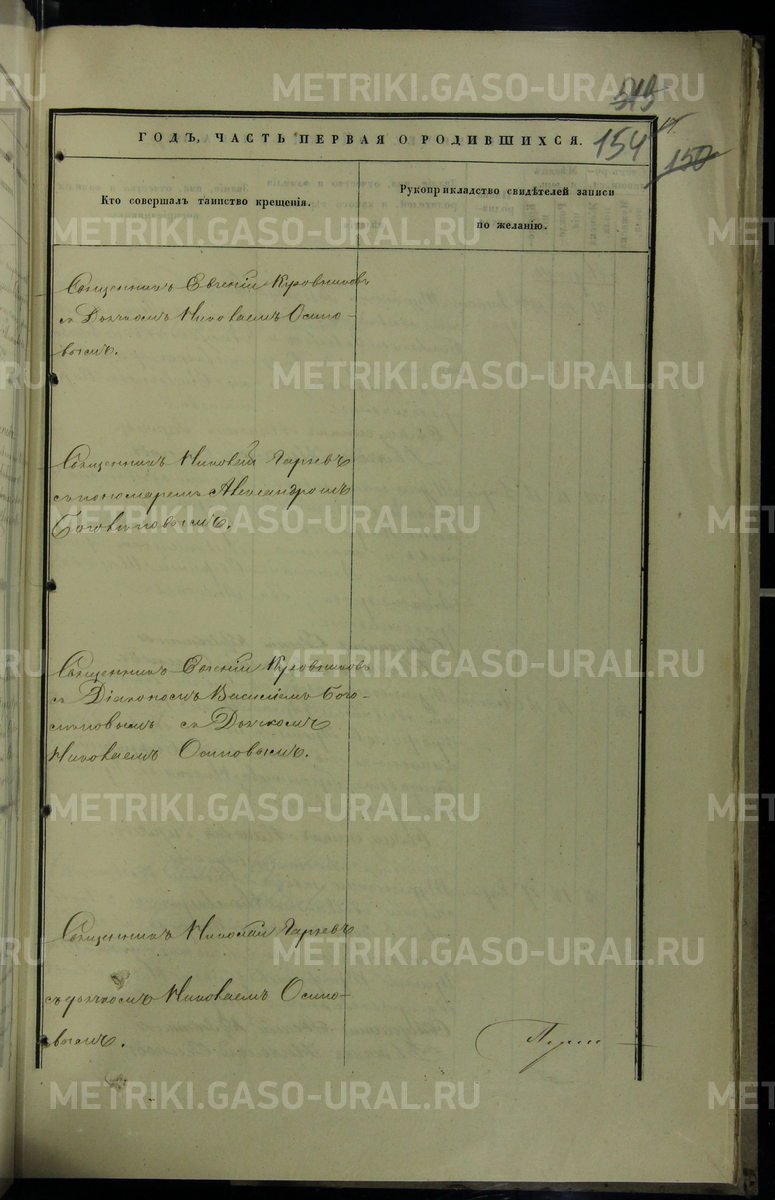 METRIKI.GASO-URAL.RU
515
ГОДЪ, ЧАСТЬ ПЕРВАЯ О РОДИВШИХСЯ.
154
150
Кто совершалъ таинство крещенія.
Рукоприкладство свидѣтелей записи
по желанію.
Священникъ Евгеній
съ Дьячкомъ Николаемъ Осипо-
вымъ.
Священникъ Николай Гаряевъ
съ пономаремъ Александромъ
Боголѣповымъ.
Священникъ Евгеній
съ Діакономъ Василіемъ Бого-
лѣповымъ съ Дьячкомъ
Николаемъ Осиповымъ.
Священникъ Николай Гаряевъ
съ дьячкомъ Николаемъ Осипо-
вымъ.